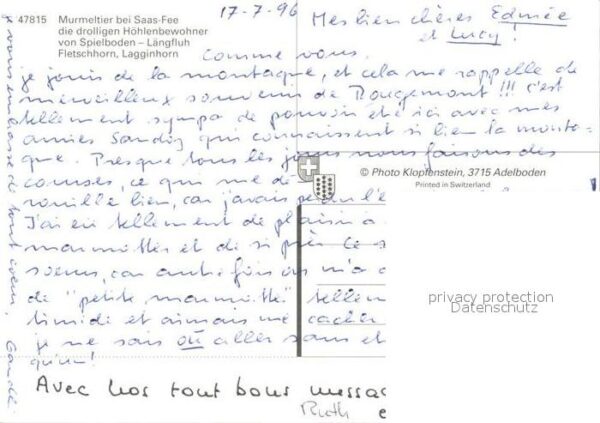 47815 Murmeltier bei Saas-Fee
die drolligen Höhlenbewohner
von Spielboden – Längfluh
Fletschhorn, Lagginhorn
17-7-96
Mes bien chères Edmée
et Lucy!
Comme vous,
je jouis de la montagne, et cela me rappelle de
merveilleux souvenir de Rougemont!!! c'est
tellement sympa de pouvoir être ici avec mes
amies qui connaissent si bien la monta-
gne. Presque tous les jours nous faisons des
courses, ce qui me dé
rouille bien, car j'avais
J'ai eu tellement de plaisir à
marmottes et de si près
car autrefois on m'a
de "petite marmotte" tellem
timide et aimais me cacher
je ne sais où aller sans
qu'un!
je vous embrasse de tout cœur,
Avec nos tout bons messa
Ruth
© Photo Klopfenstein, 3715 Adelboden
Printed in Switzerland
privacy protection
Datenschutz